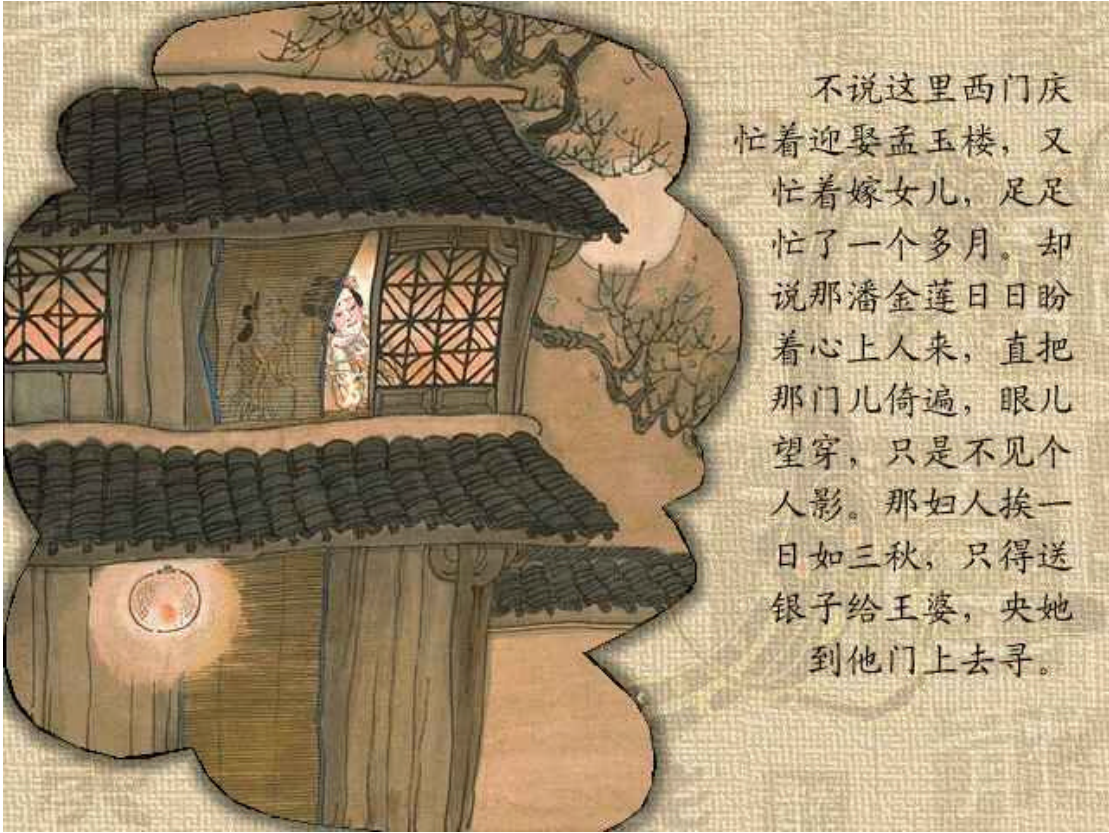 不说这里西门庆
忙着迎娶孟玉楼，又
忙着嫁女儿，足足
忙了一个多月。却
说那潘金莲日日盼
着心上人来，直把
那门儿倚遍，眼儿
望穿，只是不见个
人影。那妇人挨一
日如三秋，只得送
银子给王婆，央她
到他门上去寻。